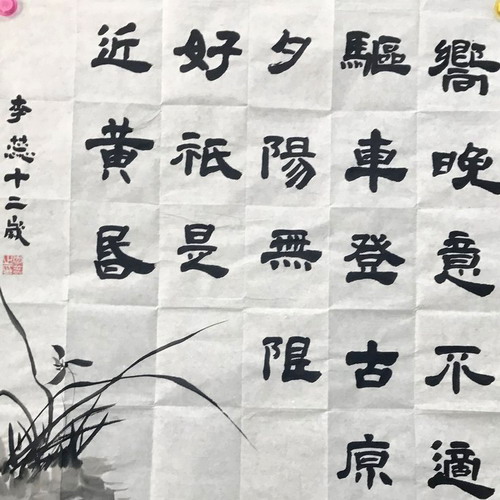 嚮晚意不適
驅車登古原
夕陽無限
好祇是
近黄昏
李蕊十二歲